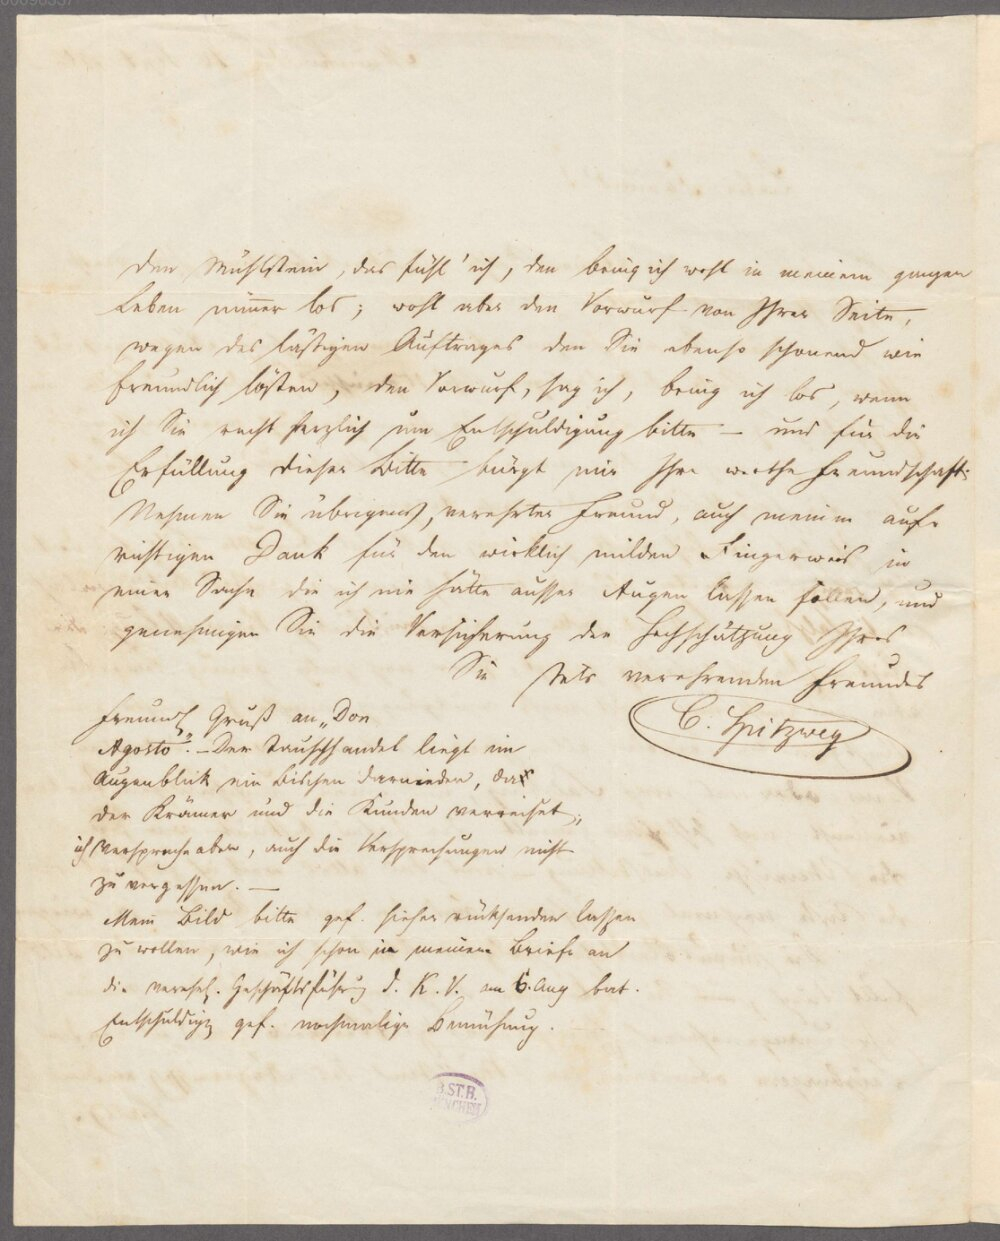 00090337
den Mühlstein, das fühl' ich, den bring ich wohl in meinem ganzen
Leben nimer los; wohl aber den Vorwurf von Ihrer Seite,
wegen des lästigen Auftrages den Sie ebenso schonend wie
freundlich lösten, den Vorwurf, sag ich, bring ich los, wenn
ich Sie recht herzlich um Entschuldigung bitte – und für die
Erfüllung dieser Bitte bürgt mir Ihre werthe Freundschaft.
Nehmen Sie übrigens, verehrter Freund, auch meinen auf-
richtigen Dank für den wirklich milden Fingerweis in
einer Sache die ich nie hätte ausser Augen lassen sollen, und
genehmigen Sie die Versicherung der Hochschätzung Ihres
Sie stets verehrenden Freundes
C. Spitzweg
Freundl Gruß an „Don
Agosto". – Der Tauschhandel liegt im
Augenblick ein Bischen darnieder, da
der Krämer und die Kunden verreiset;
ich verspreche aber, auch die Versprechungen nicht
zu vergessen. —
Mein Bild bitte gef. hieher rücksenden lassen
zu wollen, wie ich schon in meinem Briefe an
die verehl. Geschäftsführg d. K. V. am 6. Aug bat.
Entschuldigg gef. nochmalige Bemühung.
B. ST. B.
MÜNCHEN